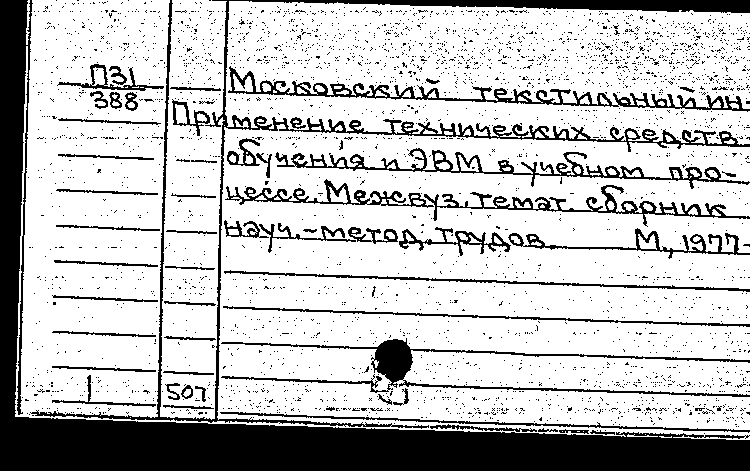 П31
388
Московский текстильный ин-
Применение технических средств
обучения и ЭВМ в учебном про-
цессе. Межвуз. темат. сборник
науч.-метод. трудов. М., 1977-
1 507